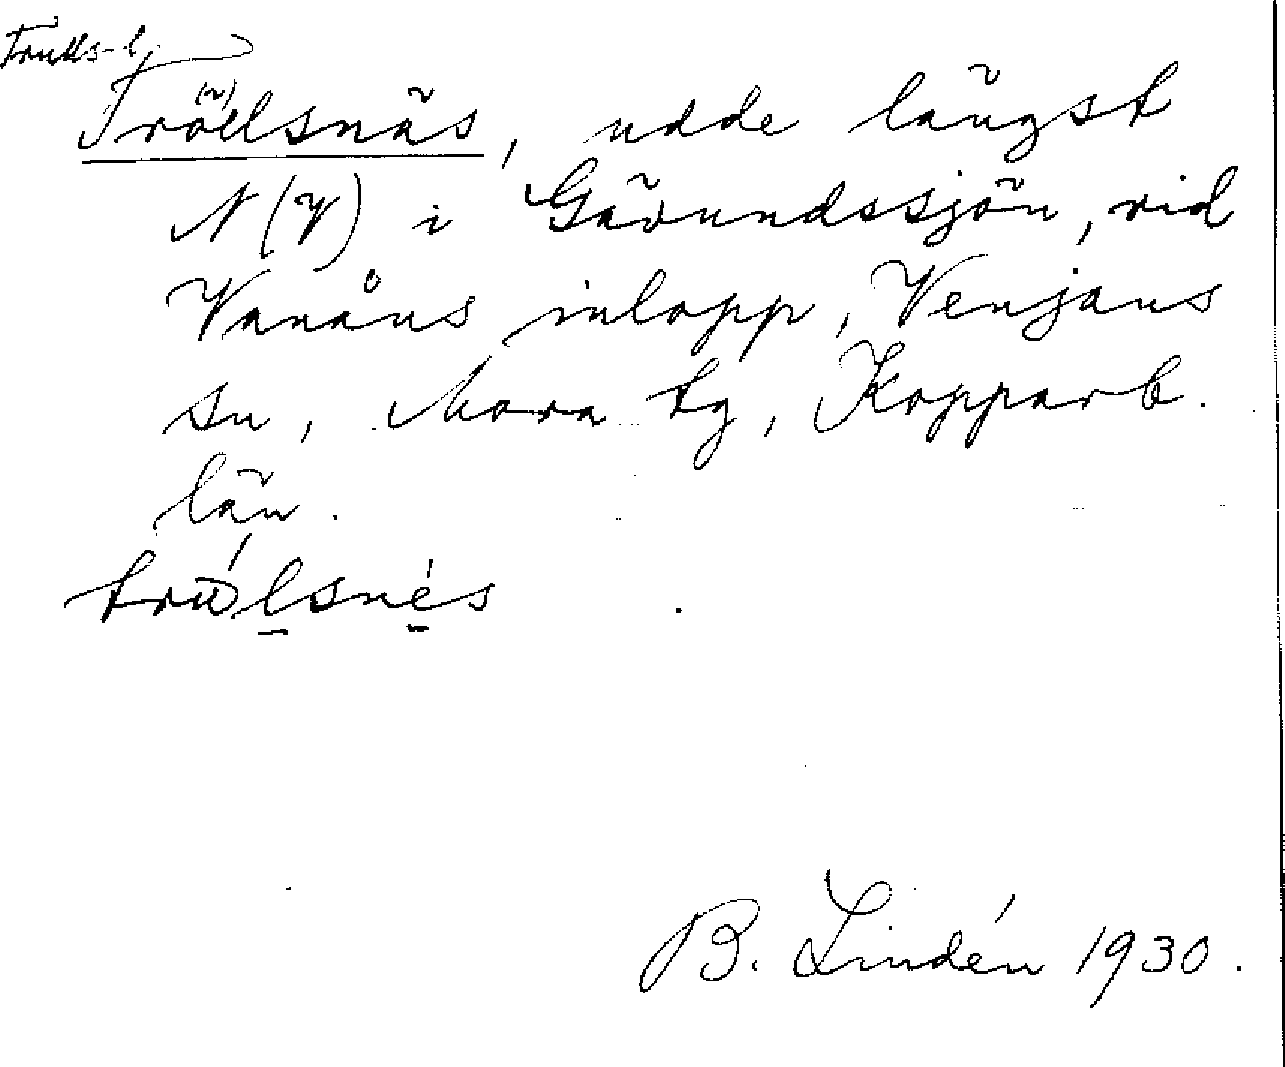 Trölsnäs, udde längst
N (V) i Gävundssjön, vid
Vanåns inlopp, Venjans
sn, Mora tg, Kopparb.
län.
B. Lindén 1930.